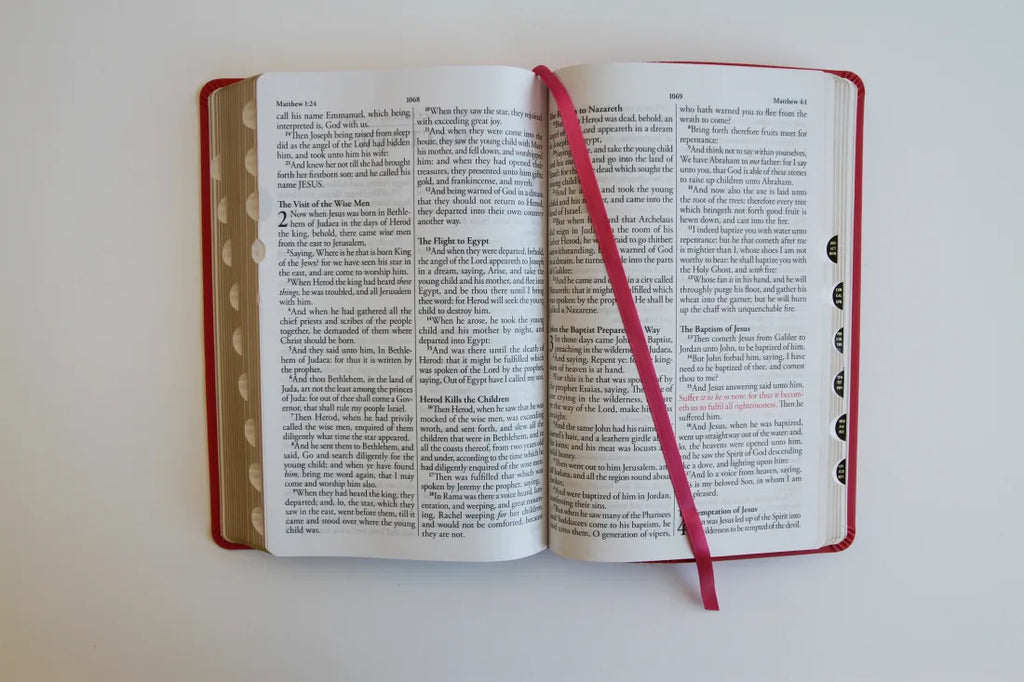 Matthew 1:24
1068
call his name Emmanuel, which being
interpreted is, God with us.
24Then Joseph being raised from sleep
did as the angel of the Lord had bidden
him, and took unto him his wife:
25And knew her not till she had brought
forth her firstborn son: and he called his
name JESUS.
The Visit of the Wise Men
2 Now when Jesus was born in Bethle-
hem of Judaea in the days of Herod
the king, behold, there came wise men
from the east to Jerusalem,
2Saying, Where is he that is born King
of the Jews? for we have seen his star in
the east, and are come to worship him.
3When Herod the king had heard these
things, he was troubled, and all Jerusalem
with him.
4And when he had gathered all the
chief priests and scribes of the people
together, he demanded of them where
Christ should be born.
5And they said unto him, In Bethle-
hem of Judaea: for thus it is written by
the prophet,
6And thou Bethlehem, in the land of
Juda, art not the least among the princes
of Juda: for out of thee shall come a Gov-
ernor, that shall rule my people Israel.
7Then Herod, when he had privily
called the wise men, enquired of them
diligently what time the star appeared.
8And he sent them to Bethlehem, and
said, Go and search diligently for the
young child; and when ye have found
him, bring me word again, that I may
come and worship him also.
9When they had heard the king, they
departed; and, lo, the star, which they
saw in the east, went before them, till it
came and stood over where the young
child was.
10When they saw the star, they rejoiced
with exceeding great joy.
11And when they were come into the
house, they saw the young child with Mary
his mother, and fell down, and worshipped
him: and when they had opened their
treasures, they presented unto him gifts;
gold, and frankincense, and myrrh.
12And being warned of God in a dream
that they should not return to Herod,
they departed into their own country
another way.
The Flight to Egypt
13And when they were departed, behold,
the angel of the Lord appeareth to Joseph
in a dream, saying, Arise, and take the
young child and his mother, and flee into
Egypt, and be thou there until I bring
thee word: for Herod will seek the young
child to destroy him.
14When he arose, he took the young
child and his mother by night, and
departed into Egypt:
15And was there until the death of
Herod: that it might be fulfilled which
was spoken of the Lord by the prophet,
saying, Out of Egypt have I called my son.
Herod Kills the Children
16Then Herod, when he saw that he was
mocked of the wise men, was exceeding
wroth, and sent forth, and slew all the
children that were in Bethlehem, and in
all the coasts thereof, from two years old
and under, according to the time which he
had diligently enquired of the wise men.
17Then was fulfilled that which was
spoken by Jeremy the prophet, saying,
18In Rama was there a voice heard, lam-
entation, and weeping, and great mourn-
ing, Rachel weeping for her children,
and would not be comforted, because
they are not.
1069
Matthew 4:1
to Nazareth
Herod was dead, behold, an
Lord appeareth in a dream
Egypt,
Saying, and take the young
child and go into the land of
dead which sought the
young child's
And he and took the young
child and his and came into the
land of Israel.
But when heard that Archelaus
did reign in Judaea the room of his
father Herod, he was afraid to go thither:
notwithstanding, warned of God
in a dream, he turned aside into the parts
of Galilee:
And he came and dwelt in a city called
Nazareth: that it might be fulfilled which
was spoken by the prophets, He shall be
called a Nazarene.
John the Baptist Prepares Way
In those days came John Baptist,
preaching in the wilderness Judaea,
And saying, Repent ye: for the king-
dom of heaven is at hand.
For this is he that was spoken of by
the prophet Esaias, saying, The of
one crying in the wilderness,
the way of the Lord, make his
straight.
And the same John had his raiment
camel's hair, and a leathern girdle
his loins; and his meat was locusts
honey.
Then went out to him Jerusalem, and
all Judaea, and all the region round about
Jordan,
And were baptized of him in Jordan,
confessing their sins.
But when he saw many of the Pharisees
and Sadducees come to his baptism, he
said unto them, O generation of vipers,
who hath warned you to flee from the
wrath to come?
8Bring forth therefore fruits meet for
repentance:
9And think not to say within yourselves,
We have Abraham to our father: for I say
unto you, that God is able of these stones
to raise up children unto Abraham.
10And now also the axe is laid unto
the root of the trees: therefore every tree
which bringeth not forth good fruit is
hewn down, and cast into the fire.
11I indeed baptize you with water unto
repentance: but he that cometh after me
is mightier than I, whose shoes I am not
worthy to bear: he shall baptize you with
the Holy Ghost, and with fire:
12Whose fan is in his hand, and he will
throughly purge his floor, and gather his
wheat into the garner; but he will burn
up the chaff with unquenchable fire.
The Baptism of Jesus
13Then cometh Jesus from Galilee to
Jordan unto John, to be baptized of him.
14But John forbad him, saying, I have
need to be baptized of thee, and comest
thou to me?
15And Jesus answering said unto him,
Suffer it to be so now: for thus it becom-
eth us to fulfil all righteousness. Then he
suffered him.
16And Jesus, when he was baptized,
went up straightway out of the water: and,
lo, the heavens were opened unto him,
and he saw the Spirit of God descending
like a dove, and lighting upon him:
17And lo a voice from heaven, saying,
This is my beloved Son, in whom I am
well pleased.
Temptation of Jesus
4 Then was Jesus led up of the Spirit into
wilderness to be tempted of the devil.